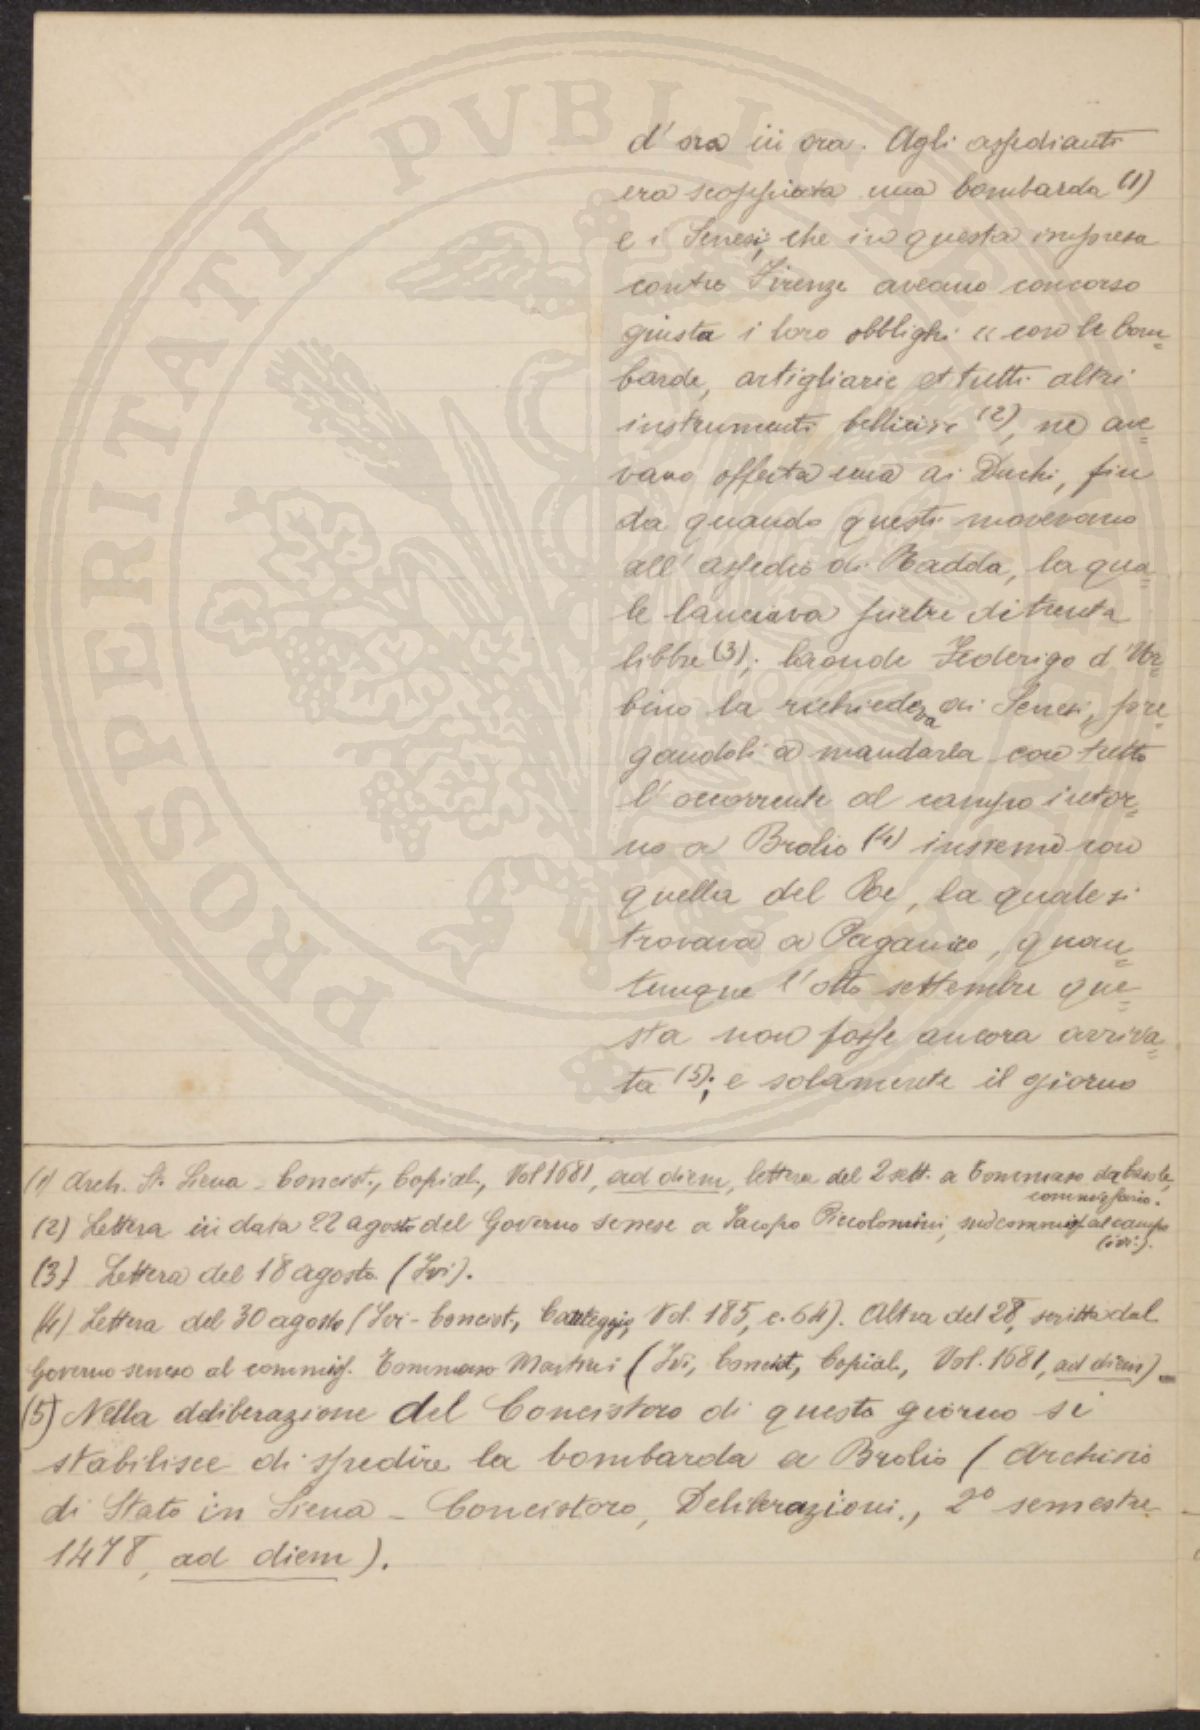 d'ora in ora. Agli assedianti
era scoppiata una bombarda (1)
e i Senesi, che in questa impresa
contro Firenze aveano concorso
giusta i loro obblighi « con le bom=
barde, artigliarie et tutti altri
instrumenti bellicisi (2), ne ave=
vano offerta una ai Duchi, fin
da quando questi movevano
all'assedio di Radda, la qua=
le lanciava pietre di trenta
libbre (3); laonde Federigo d'Ur=
bino la richiedeva ai Senesi, pre=
gandoli a mandarla con tutto
l'occorrente al campo intor=
no a Brolio (4) insieme con
quella del Re, la quale si
trovava a Paganico, quan=
tunque l'otto settembre que=
sta non fosse ancora arriva=
ta (5); e solamente il giorno
(1) Arch. St. Siena - Concist., Copial., Vol 1681, ad diem, lettera del 2 sett. a Tommaso
commissario.
(2) Lettera in data 22 agosto del Governo senese a Jacopo Piccolomini, suo commiss. al campo
(ivi).
(3) Lettera del 18 agosto (Ivi).
(4) Lettera del 30 agosto (Ivi - Concist., Carteggio, Vol. 185, c. 64). Altra del 28, scritta dal
Governo senese al commiss. Tommaso (Ivi, Concist., Copial., Vol. 1681, ad diem)
(5) Nella deliberazione del Concistoro di questo giorno si
stabilisce di spedire la bombarda a Brolio (Archivio
di Stato in Siena - Concistoro, Deliberazioni., 2° semestre
1478, ad diem).
PROSPERITATI PVBLICAE